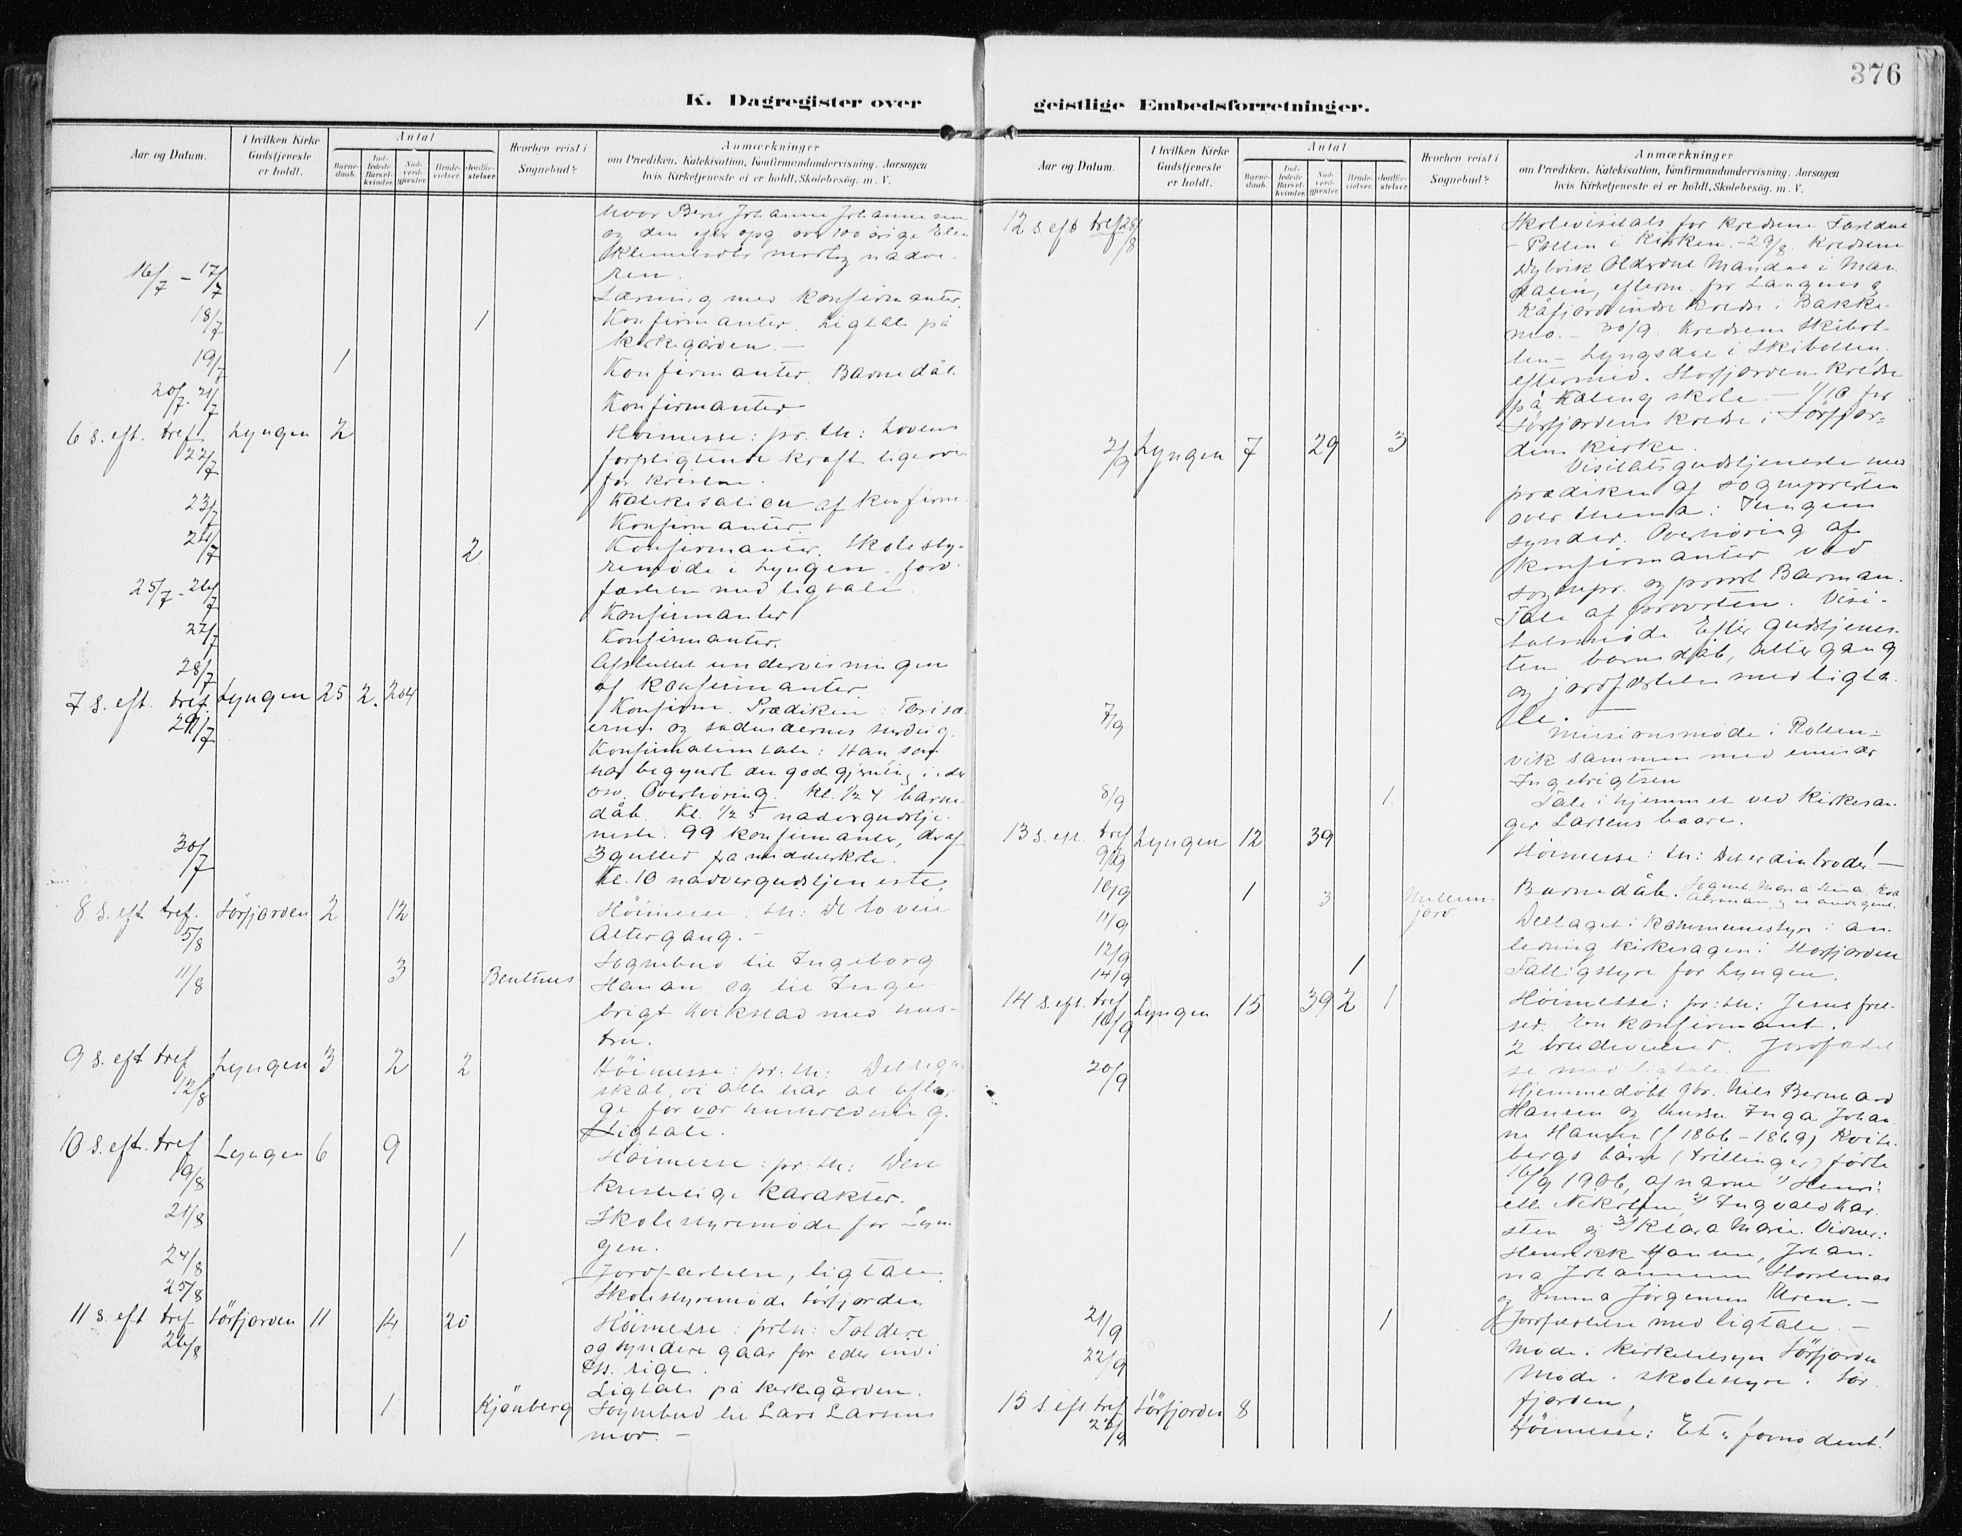 376
K. Dagregister over geistlige Embedsforretninger.
Aar og Datum.
I hvilken Kirke Gudstjeneste er holdt.
Antal
Barnedaab.
Indledede Barselkvinder.
Nadverdgjæster.
Brudevielser.
Jordfæstelser.
Hvorhen reist i Sognebud?
Anmærkninger
om Prædiken, Katekisation, Konfirmandundervisning, Aarsagen
hvis Kirketjeneste ei er holdt, Skolebesøg, m. V.
hvor Berit Johanne Johannesen
og den efter opg. over 100 årige Elen
Klemetsdtr modtog nadve-
ren.
16/7 - 17/7 Læsning med konfirmanter.
18/7 1 Konfirmanter. Ligtale på
kirkegården. -
19/7 1 Konfirmanter. Barnedåb.
20/7 - 21/7 Konfirmanter
6 s. eft. tref. 22/7 Lyngen 2 Høimesse: pr. th: Lovens
forpligtende kraft ligeover
for kristne.
23/7 Katekesation af konfirm.
Konfirmanter.
24/7 2 Konfirmanter. Skolesty-
remøde i Lyngen. Jord-
fæstelse med ligtale.
25/7 - 26/7 Konfirmanter
27/7 Konfirmanter.
28/7 Afsluttet undervisningen
af konfirmanter.
7 s. eft. tref. 29/7 Lyngen 25 2. 204 Konfirm. Prædiken: Farisæ-
ernes og sadusæernes surdeig.
Konfirmationstale: Han som
har begyndt den god gjerning i eder
osv. Overhøring. Kl. 1/2 4 barne-
dåb. Kl. 1/2 5 nadvergudstje-
neste. 99 konfirmanter, deraf
3 gutter fra middelskole.
30/7 Kl. 10 nadvergudstjeneste.
8 s. eft tref. 5/8 Sörfjorden 2 12 Höimesse: th: De to veie
Altergang. -
11/8 3 Bentsnes Sognebud til Ingeborg
Hanan og til Inge-
brigt Kvikstad med hus-
tru.
9 s. eft tref 12/8 Lyngen 3 2 2 Höimesse: pr. th: Det regn-
skab, vi alle har at aflæ-
ge for vor husholdning.
Ligtale.
10 s. eft. tref 19/8 Lyngen 6 9 Höimesse: pr. th: Den
kristelige karakter.
21/8 Skolestyremøde for Lyn-
gen.
24/8 1 Jordfæstelse, ligtale.
25/8 Skolestyremøde Sörfjorden
11 s. eft tref 26/8 Sörfjorden 11 14 20 Höimesse: pr. th: Toldere
og syndere gaar for eder ind i
Gs. rige.
Ligtale på kirkegården.
1 Kjönberg Sognebud til Lars Larsens
mor. -
Aar og Datum.
I hvilken Kirke Gudstjeneste er holdt.
Antal
Barnedaab.
Indledede Barselkvinder.
Nadverdgjæster.
Brudevielser.
Jordfæstelser.
Hvorhen reist i Sognebud?
Anmærkninger
om Prædiken, Katekisation, Konfirmandundervisning, Aarsagen
hvis Kirketjeneste ei er holdt, Skolebesøg, m. V.
12 s eft tref 28/8 Skolevisitats for kredsene
- Pollen i kirken. - 29/8 Kredsene
Dybvik Olderdal Mandal i Man-
dalen, efterm. for Langnes og
Kåfjord indre kreds i Bakke-
mo. - 30/9. Kredsene Skibot-
ten - Lyngsdal i Skibotten.
eftermid. Storfjordens kreds
på skole. - 1/10 for
Sörfjordens kreds i Sörfjor-
dens kirke.
2/9 Lyngen 7 29 3 Visitatsgudstjeneste med
prædiken af sognepresten
over thema: Tungens
synder. Overhøring af
konfirmanter ved
sognepr. og provst Barman.
Tale af provsten. Visi-
tatsmøde. Efter gudstjenes-
ten barnedåb, altergang
og jordfæstelse med ligta-
le. -
7/9 Missionsmøde i Rotten-
vik sammen med emissær
Ingebrigtsen
8/9 1 Tale i hjemmet ved kirkesan-
ger Larsens baare.
13 s. eft. tref 9/9 Lyngen 12 39 Höimesse: th: Det er din broder! -
10/9 1 3 Barnedåb.
11/9 Deltaget i kommunestyre i an-
ledning kirkesagen i Storfjorden
12/9 Fattigstyre for Lyngen.
14/9 1
14 s. eft. tref 16/9 Lyngen 15 39 2 1 Höimesse: pr: th: Jesus frel-
ser. En konfirmant.
2 brudevielser. Jordfæstel-
se med ligtale. -
20/9 Hjemmedøbt gbr. Nils Bernhard
Hansen og hustru Inga Johan-
ne Hansen (f 1866 - 1869) Kvite-
bergs børn (trillinger) født
16/9 1906, af navne 1) Henri-
ette Nikoline, 2) Ingvald Kar-
sten og 3) Klara Marie. Vidner:
Henrik Hansen, Johan-
na Johannesen Storstenes
og Emma Jørgensen Uren. -
21/9 1 Jordfæstelse med ligtale. -
22/9 Møde i kirketilsyn Sörfjorden
Møde i skolestyre i Sör-
fjorden,
15 s. eft tref 23/9 Sörfjorden 8 Höimesse: Et er fornødent!